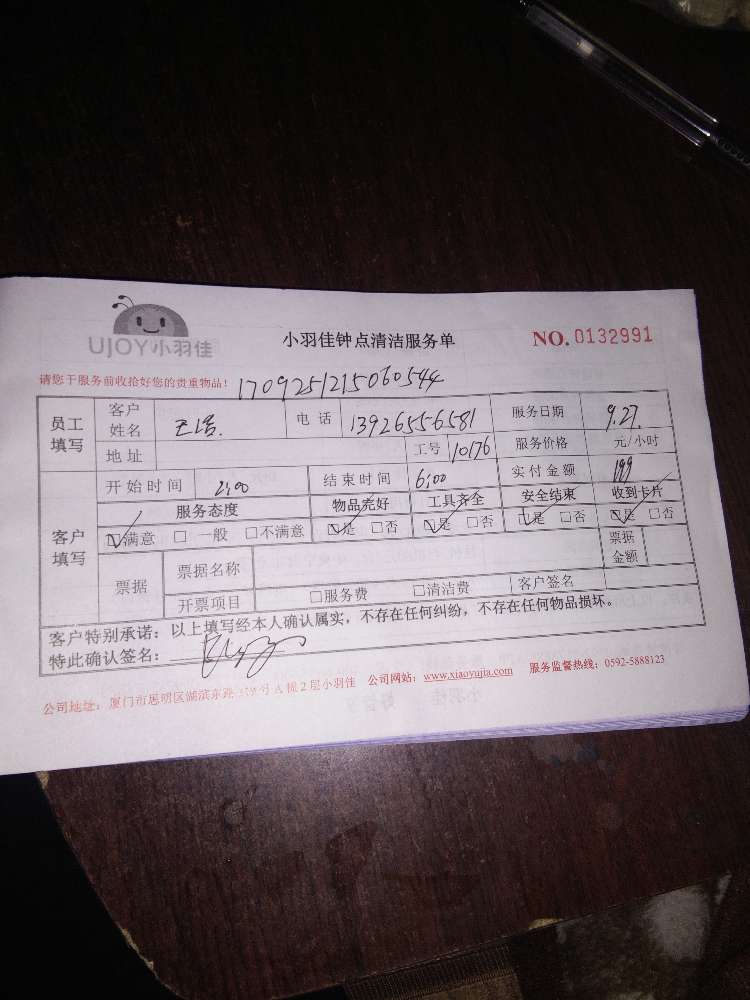 UJOY小羽佳
小羽佳钟点清洁服务单
NO. 0132991
请您于服务前收拾好您的贵重物品！ 1709251215060544
员工填写 客户姓名 电话 13926556581 服务日期 9.27.
地址 工号 10176 服务价格 元/小时
客户填写 开始时间 2:00 结束时间 6:00 实付金额 199
服务态度 物品完好 工具齐全 安全结束 收到卡片
☑满意 □ 一般 □不满意 ☑是 □否 ☑是 □否 ☑是 □否 ☑是 □否
票据 票据名称 票据金额
开票项目 □服务费 □清洁费 客户签名
客户特别承诺：以上填写经本人确认属实，不存在任何纠纷，不存在任何物品损坏。
特此确认签名：
公司地址：厦门市思明区湖滨东路 号A幢2层小羽佳 公司网站：www.xiaoyujia.com 服务监督热线：0592-5888123